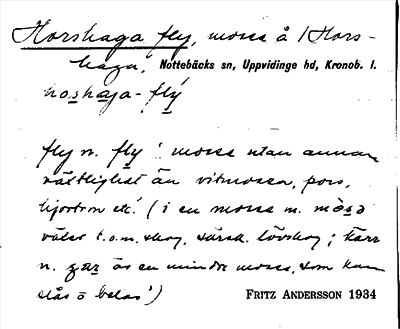 Horshaga fly, mosse å / Hors-
haga, Nottebäcks sn, Uppvidinge hd, Kronob. l.
hoshaja-flý
fly n. flý 'mosse utan annan
växtlighet än vitmossa, pors,
hjortron etc.' (i en mosse m. mòsə
växer t.o.m. skog, särsk. lövskog; kärr
n. çær är en mindre mosse, som kan
slås o betas')
FRITZ ANDERSSON 1934